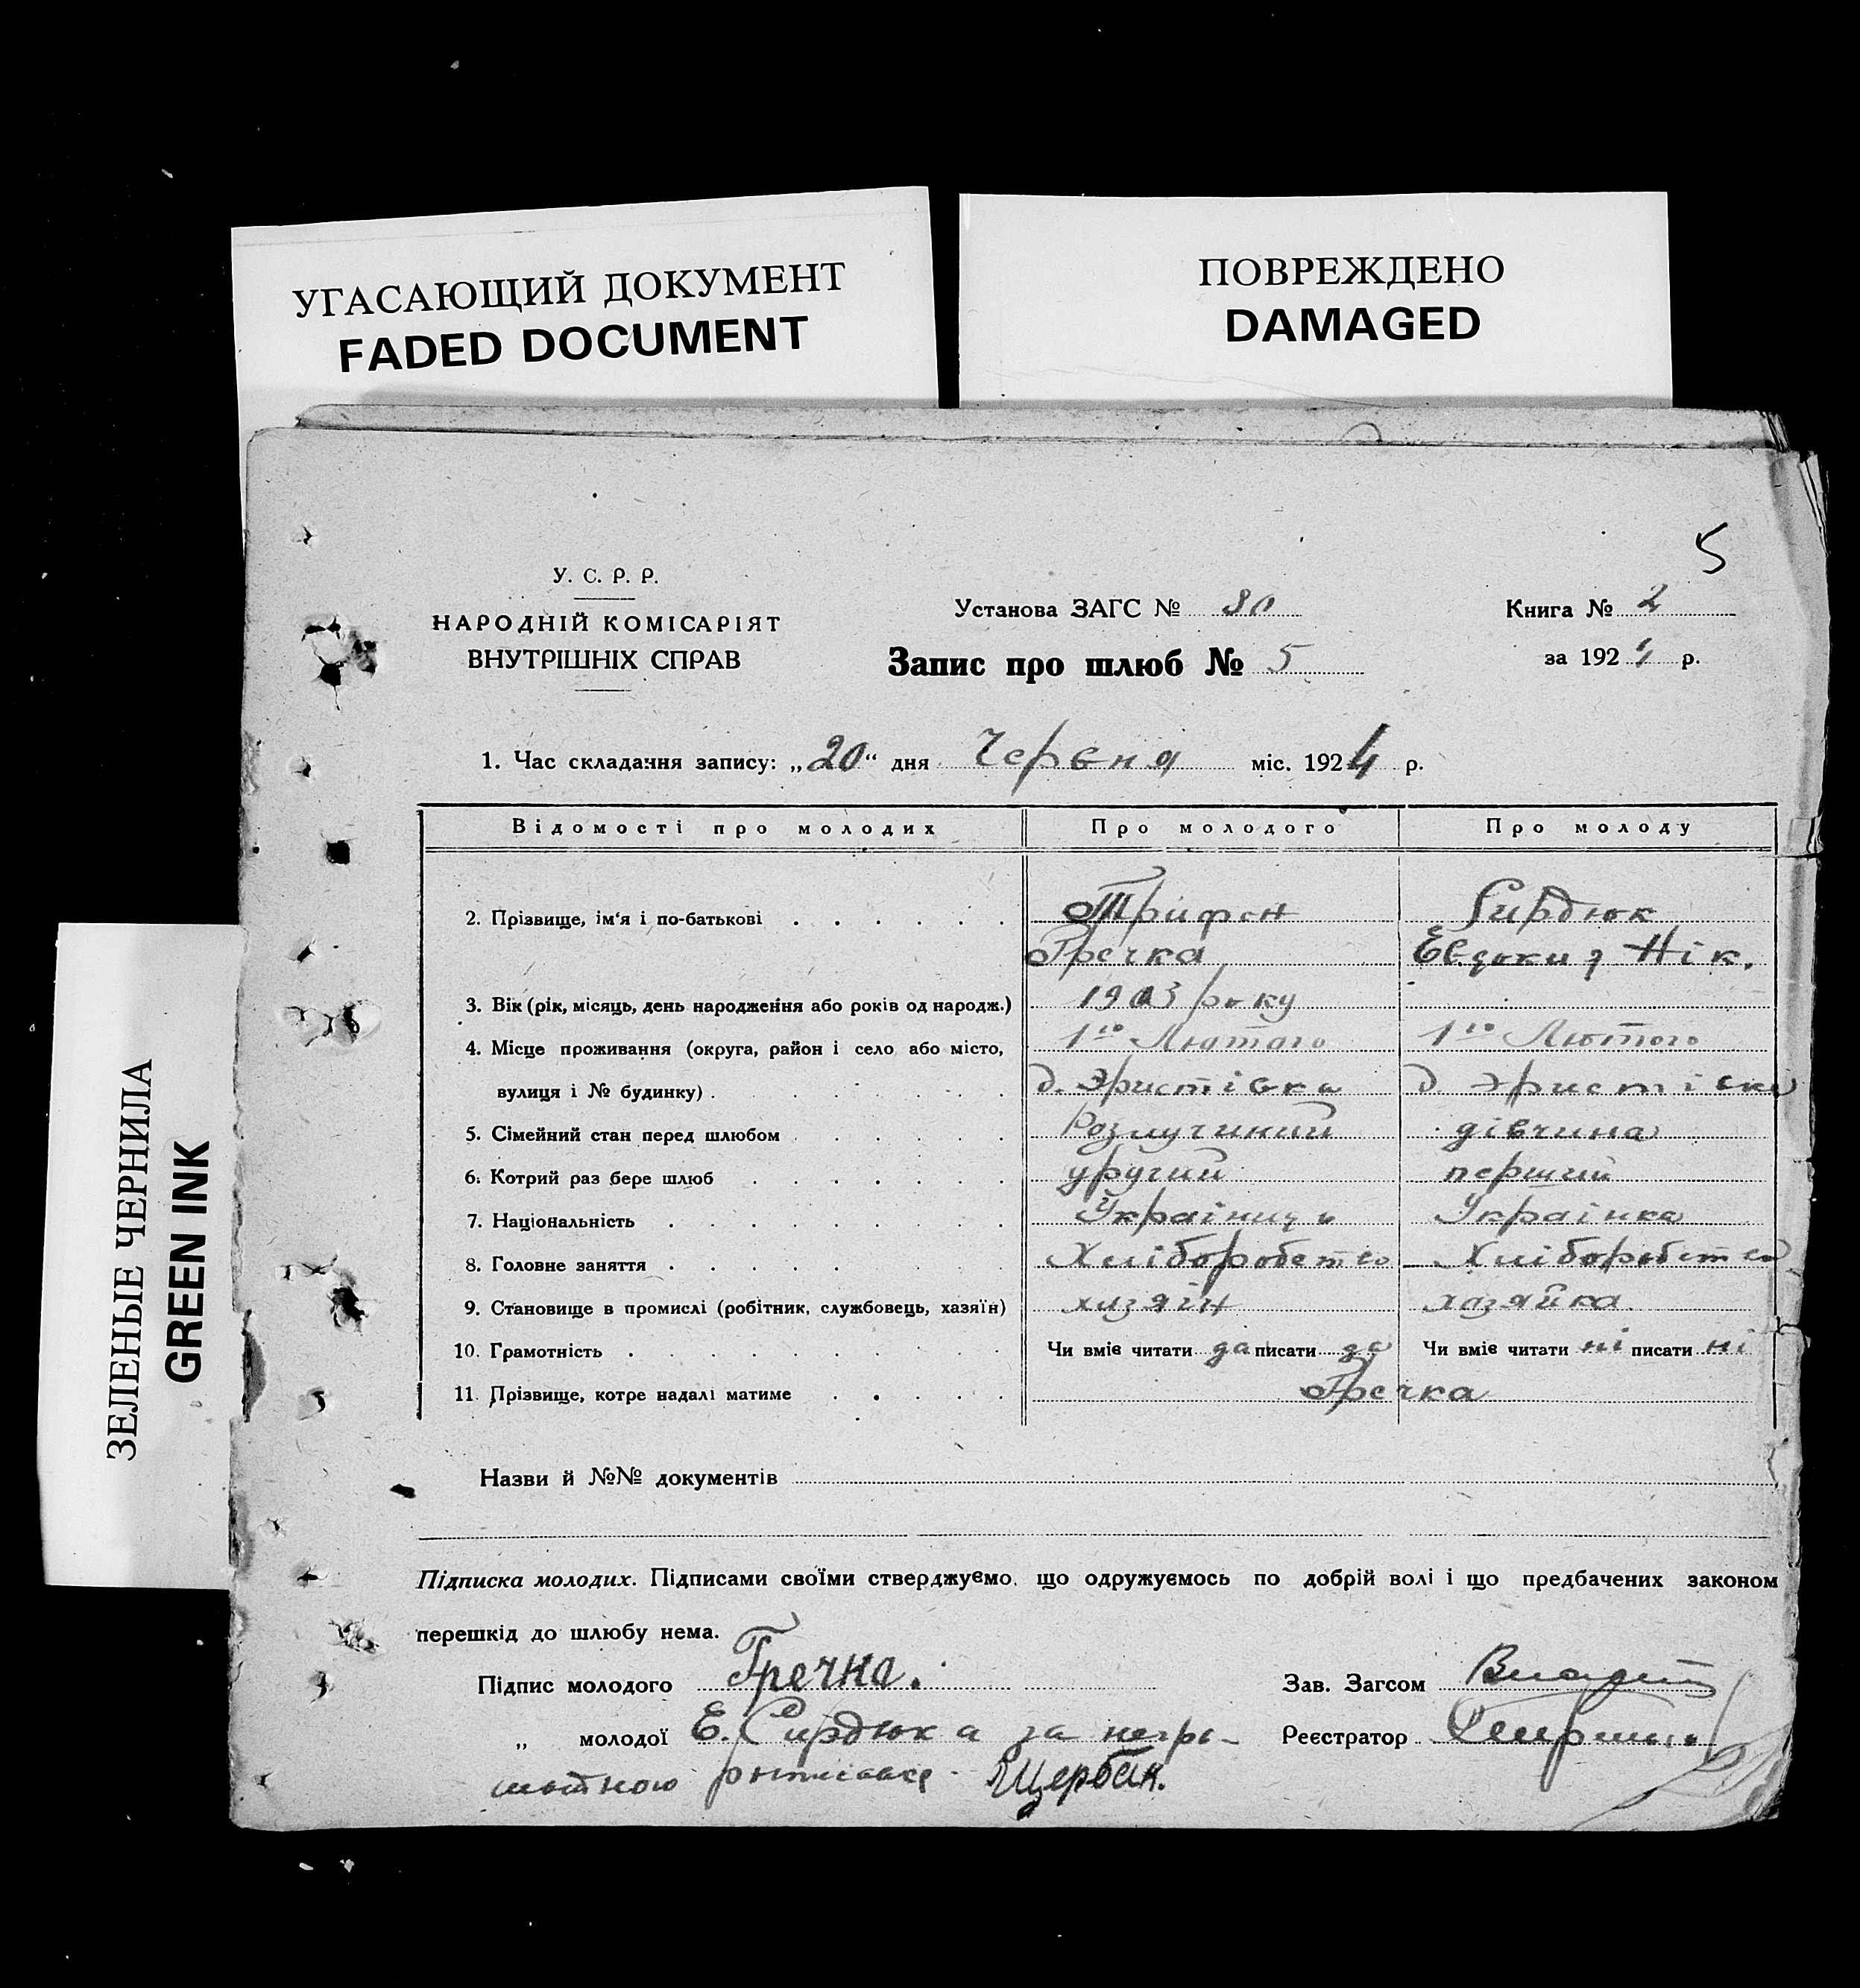 УГАСАЮЩИЙ ДОКУМЕНТ
FADED DOCUMENT
ПОВРЕЖДЕНО
DAMAGED
ЗЕЛЕНЫЕ ЧЕРНИЛА
GREEN INK
5
У. С. Р. Р.
НАРОДНІЙ КОМІСАРІЯТ
ВНУТРІШНІХ СПРАВ
Установа ЗАГС № 80
Запис про шлюб № 5
Книга № 2
за 1924 р.
1. Час складання запису: „20“ дня Червня міс. 1924 р.
Відомості про молодих Про молодого Про молоду
2. Прізвище, ім'я і по-батькові Трифон Сирдюк
Гречка Евдокия Нік.
3. Вік (рік, місяць, день народження або років од народж.) 1903 року
4. Місце проживання (округа, район і село або місто, 1го Лютого 1го Лютого
вулиця і № будинку) д. Эристівка д. Эристівка
5. Сімейний стан перед шлюбом Розлучиний дівчина
6. Котрий раз бере шлюб уручий перший
7. Національність Українець Українка
8. Головне заняття Хліборобство Хліборобство
9. Становище в промислі (робітник, службовець, хазяїн) хазяїн хазяйка
10. Грамотність Чи вміє читати да писати да Чи вміє читати ні писати ні
11. Прізвище, котре надалі матиме Гречка
Назви й №№ документів
Підписка молодих. Підписами своїми стверджуємо, що одружуємось по добрій волі і що предбачених законом
перешкід до шлюбу нема.
Підпис молодого Гречка. Зав. Загсом
„ молодої Е. Сирдюка за негра- Реєстратор
мотною росписався Щербак.